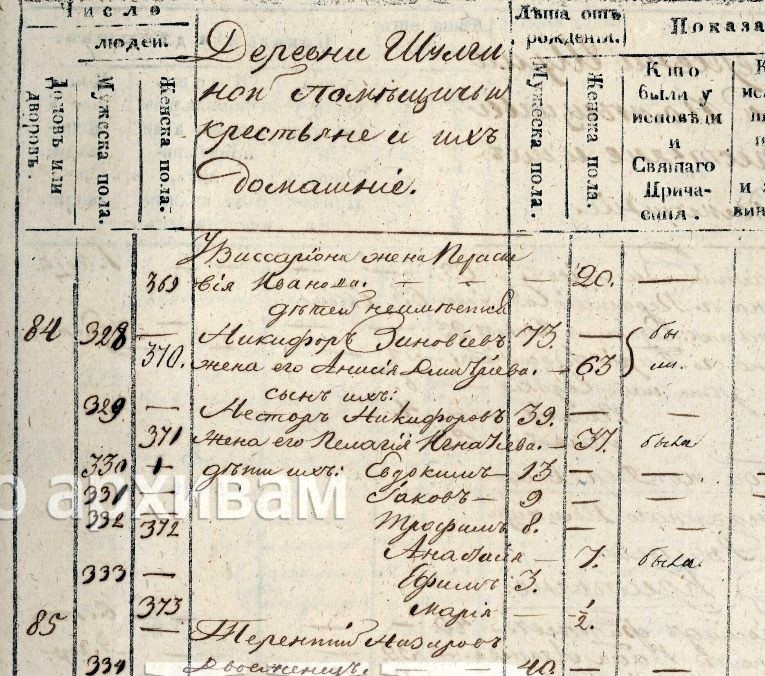 Число людей.
Домовъ или дворовъ.
Мужеска пола.
Женска пола.
Деревни Шулги
ной помѣщичьи
крестьяне и ихъ
домашніе.
Лѣта отъ рожденія.
Мужеска пола.
Женска пола.
Показа
Кто были у исповѣди и Святаго Причастія.
Виссаріона жена Параске
369 вія Иванова. — — — 20. —
дѣтей неимѣется
84 328 — Никифоръ Зиновіевъ 73. — бы
370. жена его Анисія Дмитріева. — 63 ли.
сынъ ихъ:
329 — Несторъ Никифоровъ 39. — —
371 жена его Пелагія — 37. была
330 — дѣти ихъ: Евдокимъ — 13 — —
о архивам
331 — Іаковъ — 9 — —
332 Трофимъ 8. — —
372 Анастасія — 7. была
333 — Ефимъ 3. — —
373 Марія — ½. —
85 — Терентій Назаровъ
334 двоеженецъ. — — 40. — —